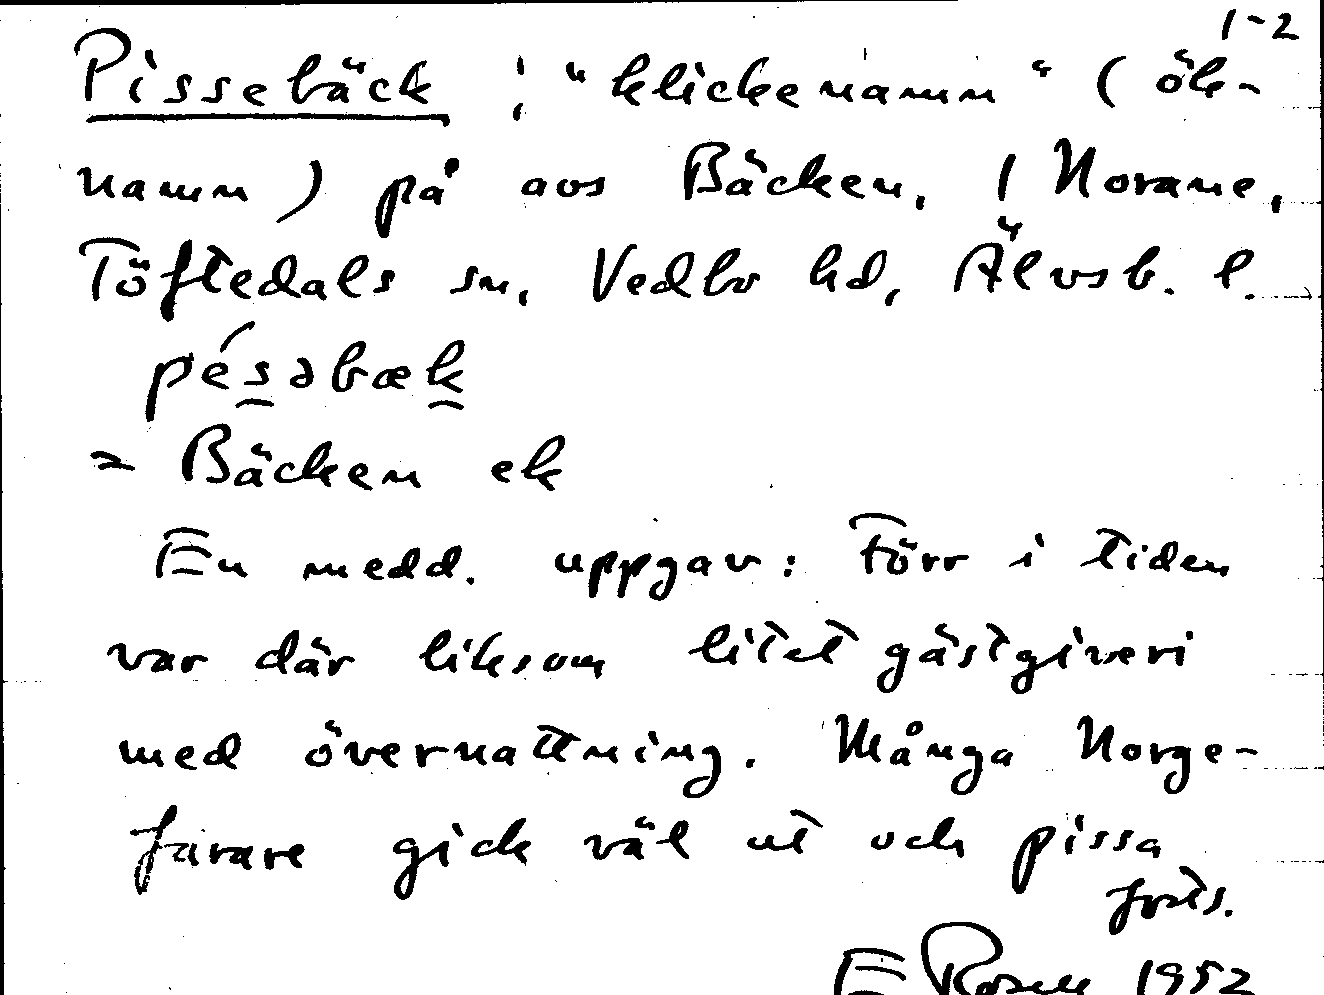 1-2
Pissebäck ; "klickenamn" (ök-
namn) på avs Bäcken, 1 Norane,
Töftedals sn, Vedbo hd, Älvsb. l.
pésəbæk
= Bäcken ek
En medd. uppgav: Förr i tiden
var där liksom litet gästgiveri
med övernattning. Många Norge-
farare gick väl ut och pissa
forts.
E Rosell 1952